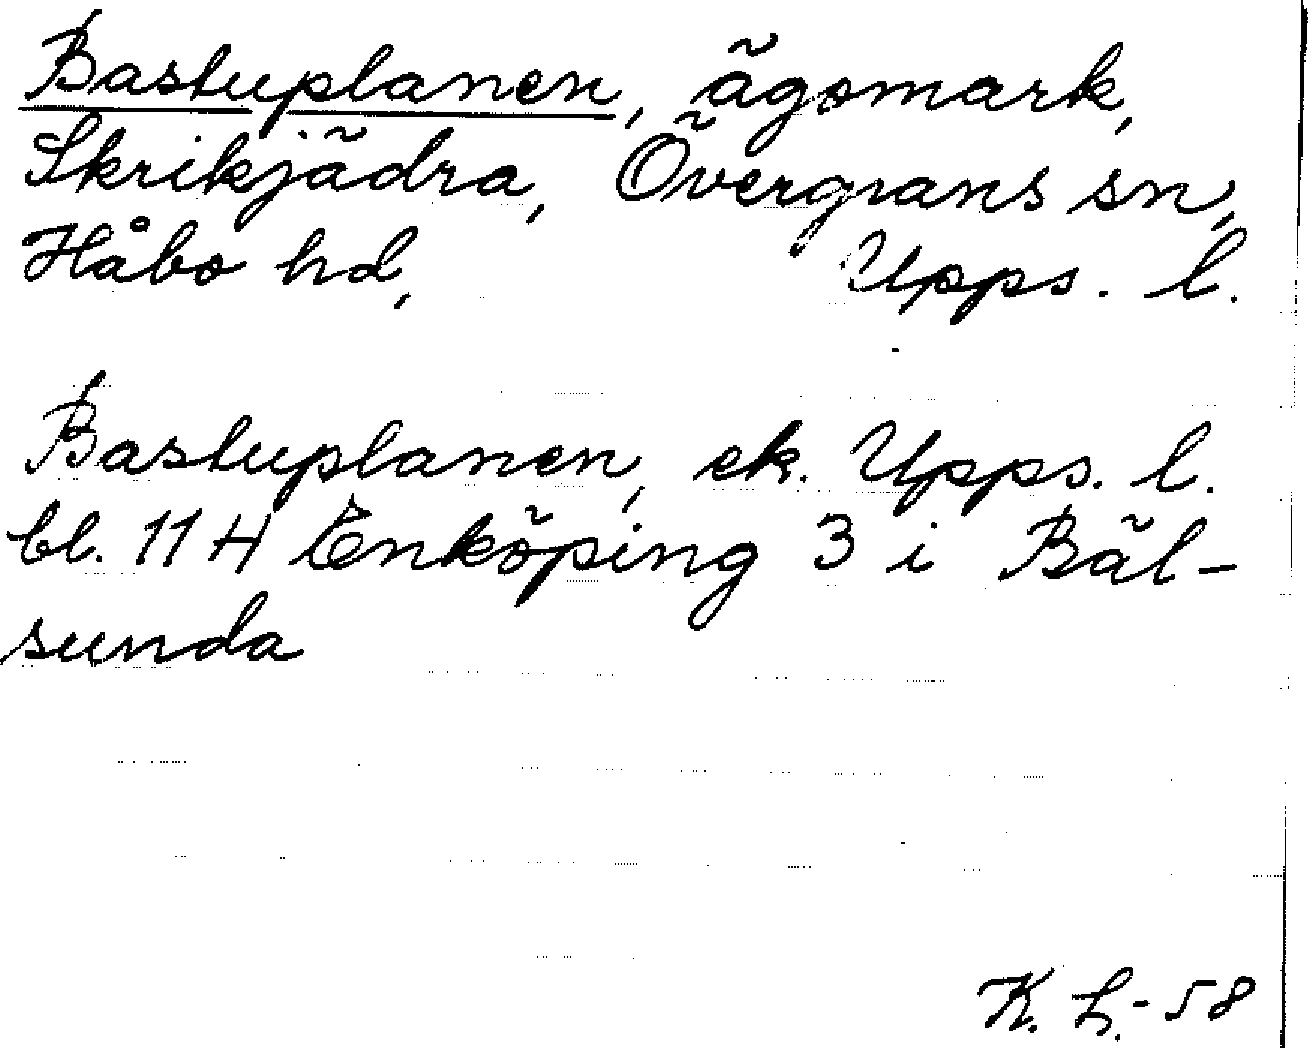 Bastuplanen, ägomark,
Skrikjädra, Övergrans sn,
Håbo hd, Upps. l.
Bastuplanen, ek. Upps. l.
bl. 11 H Enköping 3 i Bäl-
sunda
K. L. -58